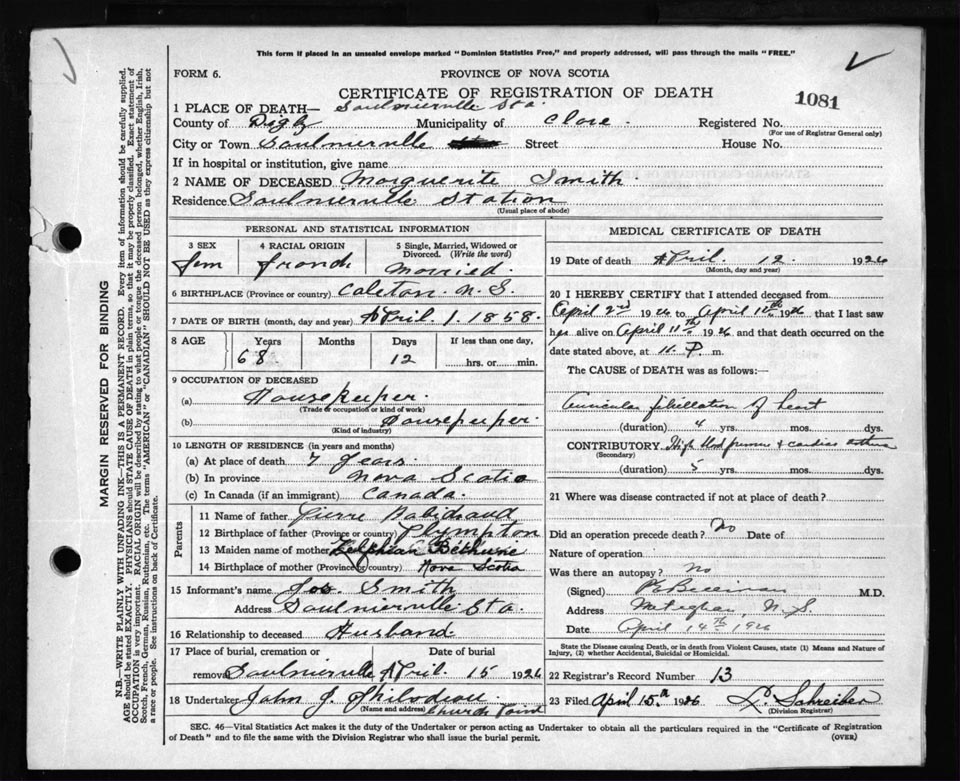 This form if placed in an unsealed envelope marked "Dominion Statistics Free," and properly addressed, will pass through the mails "FREE."
FORM 6.
PROVINCE OF NOVA SCOTIA
CERTIFICATE OF REGISTRATION OF DEATH
1081
1 PLACE OF DEATH— Saulnierville Sta.
County of Digby Municipality of Clare. Registered No.
(For use of Registrar General only)
City or Town Saulnierville Street House No.
If in hospital or institution, give name
2 NAME OF DECEASED Marguerite Smith
Residence Saulnierville Station
(Usual place of abode)
PERSONAL AND STATISTICAL INFORMATION
3 SEX Fem
4 RACIAL ORIGIN French
5 Single, Married, Widowed or Divorced. (Write the word) Married.
6 BIRTHPLACE (Province or country) N.S.
7 DATE OF BIRTH (month, day and year) April. 1. 1858.
8 AGE Years Months Days If less than one day,
68 12 hrs. or min.
9 OCCUPATION OF DECEASED
(a) Housekeeper.
(Trade or occupation or kind of work)
(b) Housekeeper.
(Kind of industry)
10 LENGTH OF RESIDENCE (in years and months)
(a) At place of death 7 years.
(b) In province Nova Scotia
(c) In Canada (if an immigrant) Canada.
Parents
11 Name of father Pierre
12 Birthplace of father (Province or country) Plympton
13 Maiden name of mother Bethune
14 Birthplace of mother (Province or country) Nova Scotia
15 Informant's name Jos. Smith
Address Saulnierville Sta.
16 Relationship to deceased Husband.
17 Place of burial, cremation or Date of burial
removal Saulnierville April. 15 1926
18 Undertaker John J. Thibodeau
(Name and address) Church Point
MEDICAL CERTIFICATE OF DEATH
19 Date of death April. 12. 1926
(Month, day and year)
20 I HEREBY CERTIFY that I attended deceased from
April 2nd 1926 to April 1926 that I last saw
her alive on April 11th 1926 and that death occurred on the
date stated above, at 11. P. m.
The CAUSE of DEATH was as follows:—
Auricular fibrillation of heart
(duration) 4 yrs. mos. dys.
CONTRIBUTORY High blood pressure & cardiac asthma
(Secondary)
(duration) 5 yrs. mos. dys.
21 Where was disease contracted if not at place of death?
Did an operation precede death? No Date of
Nature of operation
Was there an autopsy? No
(Signed) M.D.
Address Meteghan, N.S.
Date April 14th 1926
State the Disease causing Death, or in death from Violent Causes, state (1) Means and Nature of
Injury, (2) whether Accidental, Suicidal or Homicidal.
22 Registrar's Record Number 13
23 Filed April 15th 1926 L. Schreiber
(Division Registrar)
SEC. 46—Vital Statistics Act makes it the duty of the Undertaker or person acting as Undertaker to obtain all the particulars required in the "Certificate of Registration
of Death" and to file the same with the Division Registrar who shall issue the burial permit. (OVER)
MARGIN RESERVED FOR BINDING
N.B.—WRITE PLAINLY WITH UNFADING INK—THIS IS A PERMANENT RECORD. Every item of information should be carefully supplied.
AGE should be stated EXACTLY. PHYSICIANS should STATE CAUSE OF DEATH in plain terms, so that it may be properly classified. Exact statement of
OCCUPATION is very important. RACIAL ORIGIN will be described by stating to what people or tongue the deceased person belonged, whether English, Irish,
Scotch, French, German, Russian, Ruthenian, etc. The terms "AMERICAN" or "CANADIAN" SHOULD NOT BE USED as they express citizenship but not
a race or people. See instructions on back of Certificate.